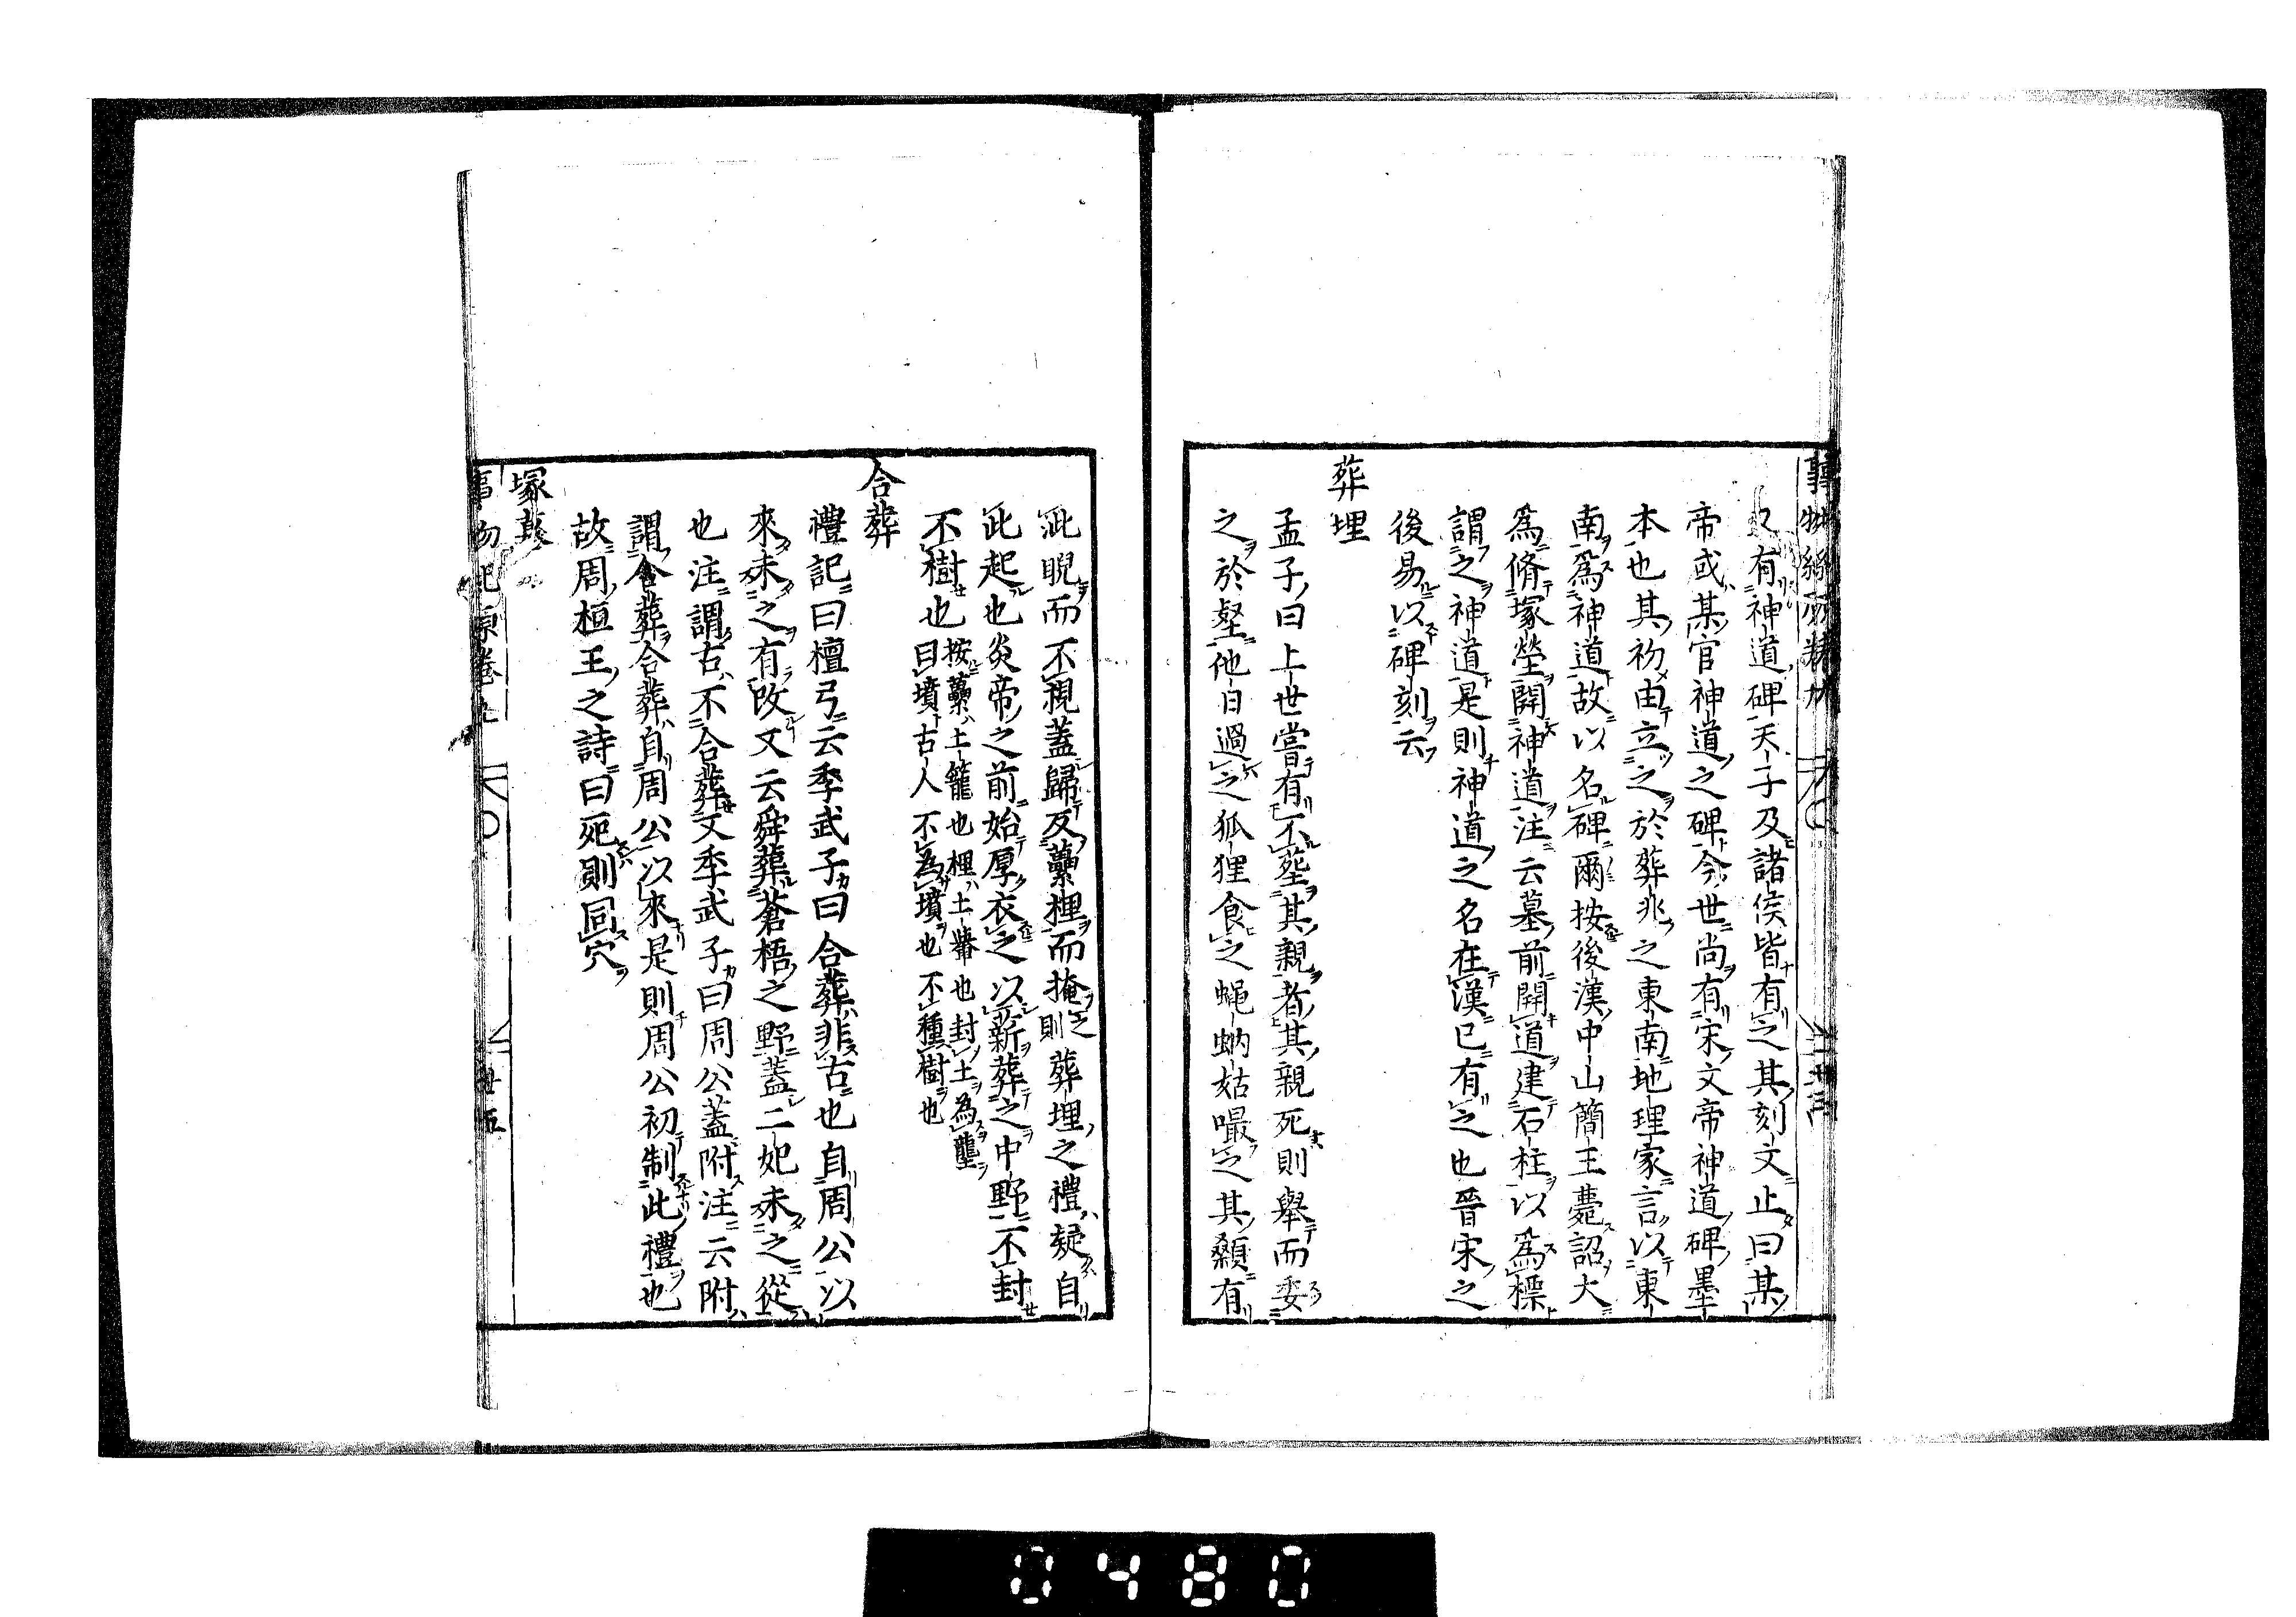 有神道碑天子及諸侯皆有之其刻文止曰某
帝或某官神道之碑今世尚有宋文帝神道碑墨
本也其初由立之於葬兆之東南地理家言以東
南爲神道故以名碑爾按後漢中山簡王薨詔大
爲脩塚塋開神道注云墓前開道建石柱以爲標
謂之神道是則神道之名在漢已有之也晉宋之
後易以碑刻云
葬埋
孟子曰上世嘗有不葬其親者其親死則舉而委
之於壑他日過之狐狸食之蝿蚋姑嘬之其顙有
泚睨而不視蓋歸反虆梩而掩之則葬埋之禮疑自
此起也炎帝之前始厚衣之以薪葬之中野不封
不樹也
按虆土籠也梩土轝也封土為壟
曰墳古人不為墳也不種樹也
合葬
禮記曰檀弓云季武子曰合葬非古也自周公以
來未之有改又云舜葬蒼梧之野蓋二妃未之從
也注謂古不合葬又季武子曰周公蓋附注云附
謂合葬合葬自周公以來是則周公初制此禮也
故周桓王之詩曰死則同穴
塚墓
事物紀原卷九
廿五